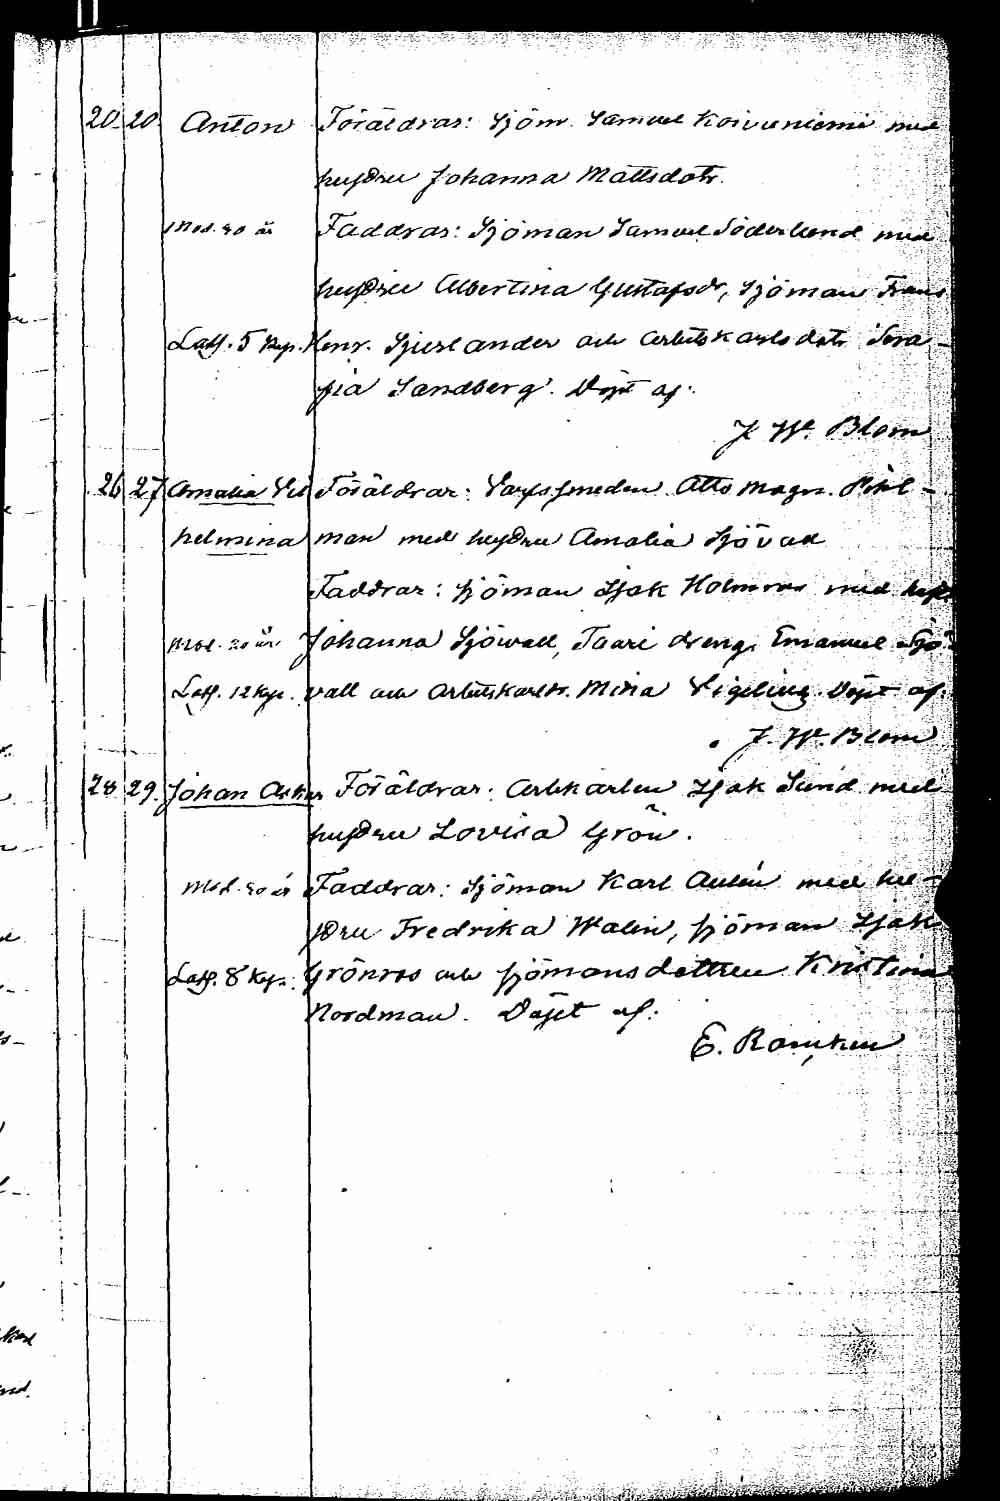 20. 20. Anton Föräldrar: Sjöm. Samuel Koivuniemi med
hustru Johanna Mattsdotr.
Mod. 40 år Faddrar: Sjöman Samuel Söderlund med
hustru Albertina Gustafsdr, Sjöman Frans
5 kop. Henr. Sjerlander och arbetskarlsdotr Sera-
fia Sandberg. Döpt af:
J. W. Blom
26 27 Amalia Vil Föräldrar: Varfssmeden Otto Magn. Pihl-
helmina man med hustru Amalia Sjövall
Faddrar: sjöman Isak Holmros med
Mod. 30 år Johanna Sjöwall, dreng. Emanuel Sjö-
12 kop. vall och arbetskarlsdr. Mina Döpt af:
J. W. Blom
28 29. Johan Oskar Föräldrar: Arbkarlen Isak Sund med
hustru Lovisa Grön.
Mod. 40 år Faddrar: Sjöman Karl Aulén med hu-
stru Fredrika Walin, sjöman Isak
8 kop. Grönros och sjömansdottren Kristina
Nordman. Döpt af:
E. Rancken